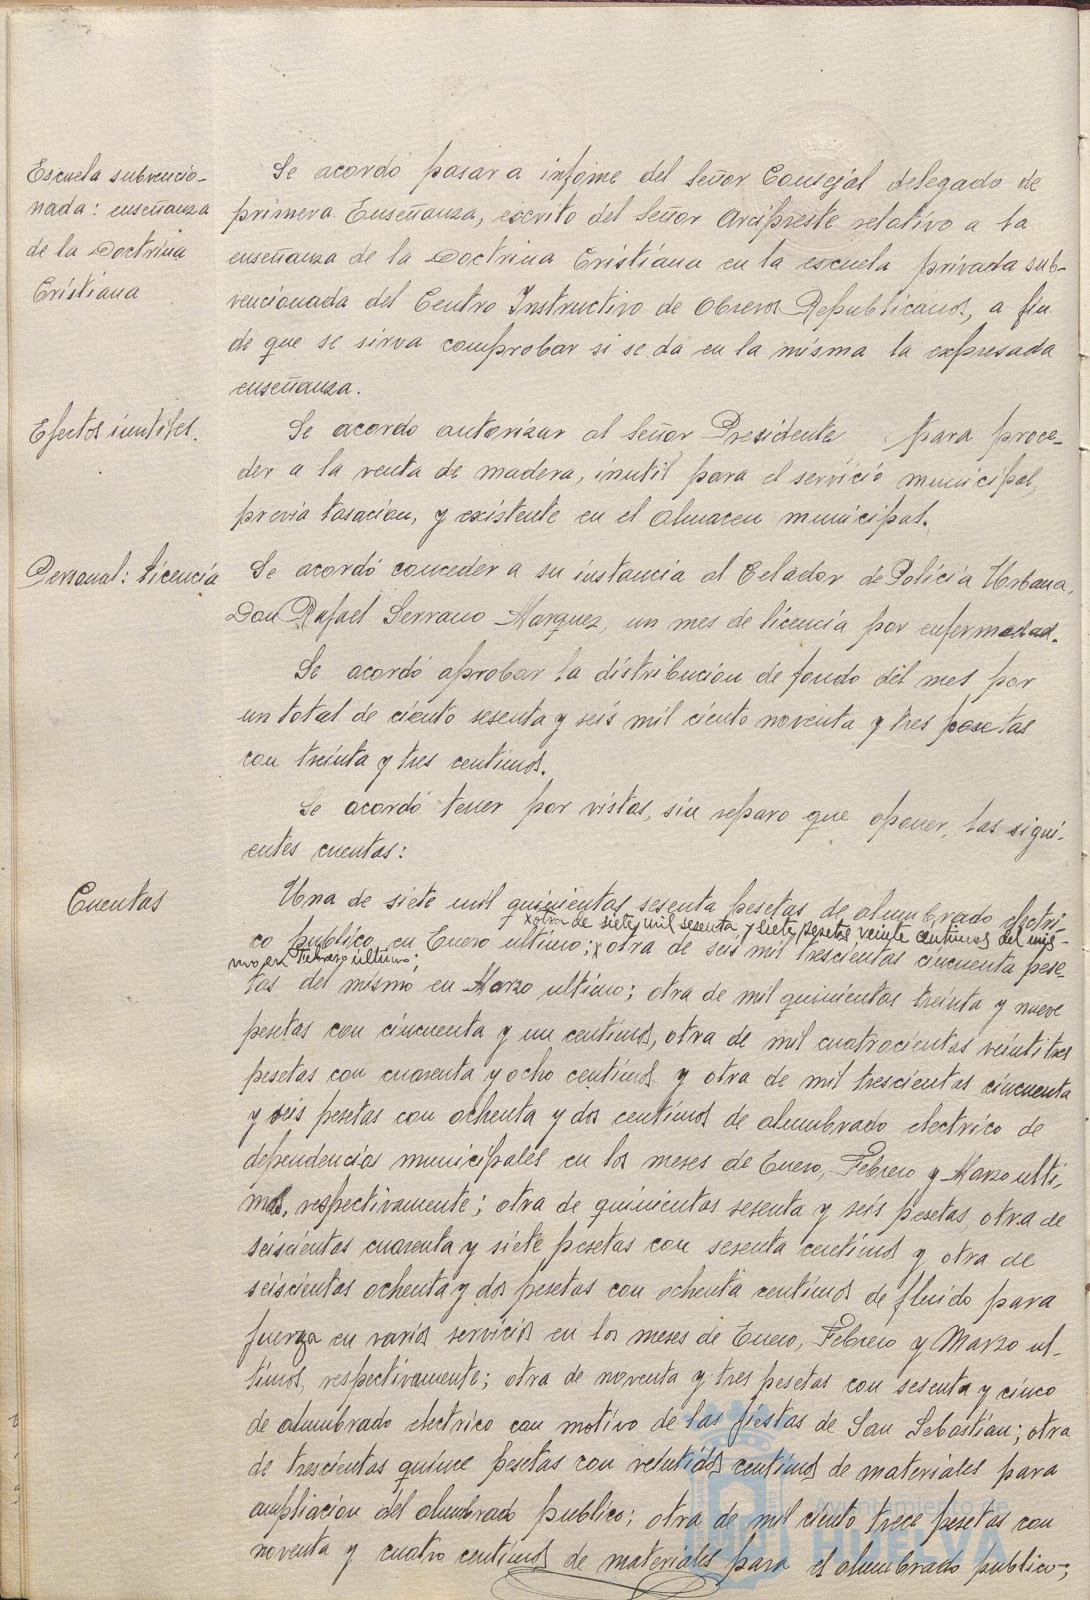 Escuela subvencio-
nada: enseñanza
de la Doctrina
Cristiana
Se acordó pasar a informe del Señor Consejal delegado de
primera Enseñanza, escrito del Señor Arcipreste relativo a la
enseñanza de la Doctrina Cristiana en la escuela privada sub-
vencionada del Centro Instructivo de Obreros Republicanos, a fin
de que se sirva comprobar si se dá en la misma la expresada
enseñanza.
Efectos inutiles.
Se acordó autorizar al Señor Presidente para proce-
der a la venta de madera, inutil para el servicio municipal,
previa tasacion, y existente en el almacen municipal.
Personal: licencia
Se acordó conceder a su instancia al Celador de Policia Urbana,
Don Rafael Serrano Marquez, un mes de licencia por enfermedad.
Se acordó aprobar la distribucion de fondo del mes por
un total de ciento sesenta y seis mil ciento noventa y tres pesetas
con treinta y tres centimos.
Se acordó tener por vistas, sin reparo que oponer, las sigui-
entes cuentas:
Cuentas
Una de siete mil quinientas sesenta pesetas de alumbrado electri-
x otra de siete mil sesenta y siete pesetas veinte centimos del mis-
co publico en Enero ultimo; x otra de seis mil trescientas cincuenta pese-
mo en Febrero ultimo;
tas del mismo en Marzo ultimo; otra de mil quinientas treinta y nueve
pesetas con cincuenta y un centimos, otra de mil cuatrocientas veintitres
pesetas con cuarenta y ocho centimos y otra de mil trescientas cincuenta
y seis pesetas con ochenta y dos centimos de alumbrado electrico de
dependencias municipales en los meses de Enero, Febrero y Marzo ulti-
mos, respectivamente; otra de quinientas sesenta y seis pesetas, otra de
seiscientas cuarenta y siete pesetas con sesenta centimos y otra de
seiscientas ochenta y dos pesetas con ochenta centimos de fluido para
fuerza en varios servicios en los meses de Enero, Febrero y Marzo ul-
timos, respectivamente; otra de noventa y tres pesetas con sesenta y cinco
de alumbrado electrico con motivo de las fiestas de San Sebastian; otra
de trescientas quince pesetas con veintidos centimos de materiales para
ampliacion del alumbrado publico; otra de mil ciento trece pesetas con
noventa y cuatro centimos de materiales para el alumbrado publico;
Ayuntamiento de
HUELVA